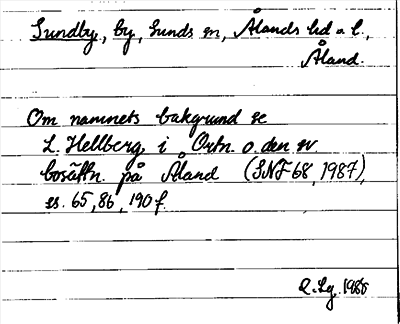 Sundby, by, Sunds sn, Ålands hd o. l.,
Åland.
Om namnets bakgrund se
L. Hellberg i Ortn. o. den sv
bosättn. på Åland (SNF 68, 1987),
ss. 65, 86, 190 f.
1988